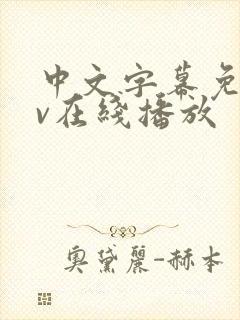 中文字幕免
v在线播放
奥黛丽-赫本